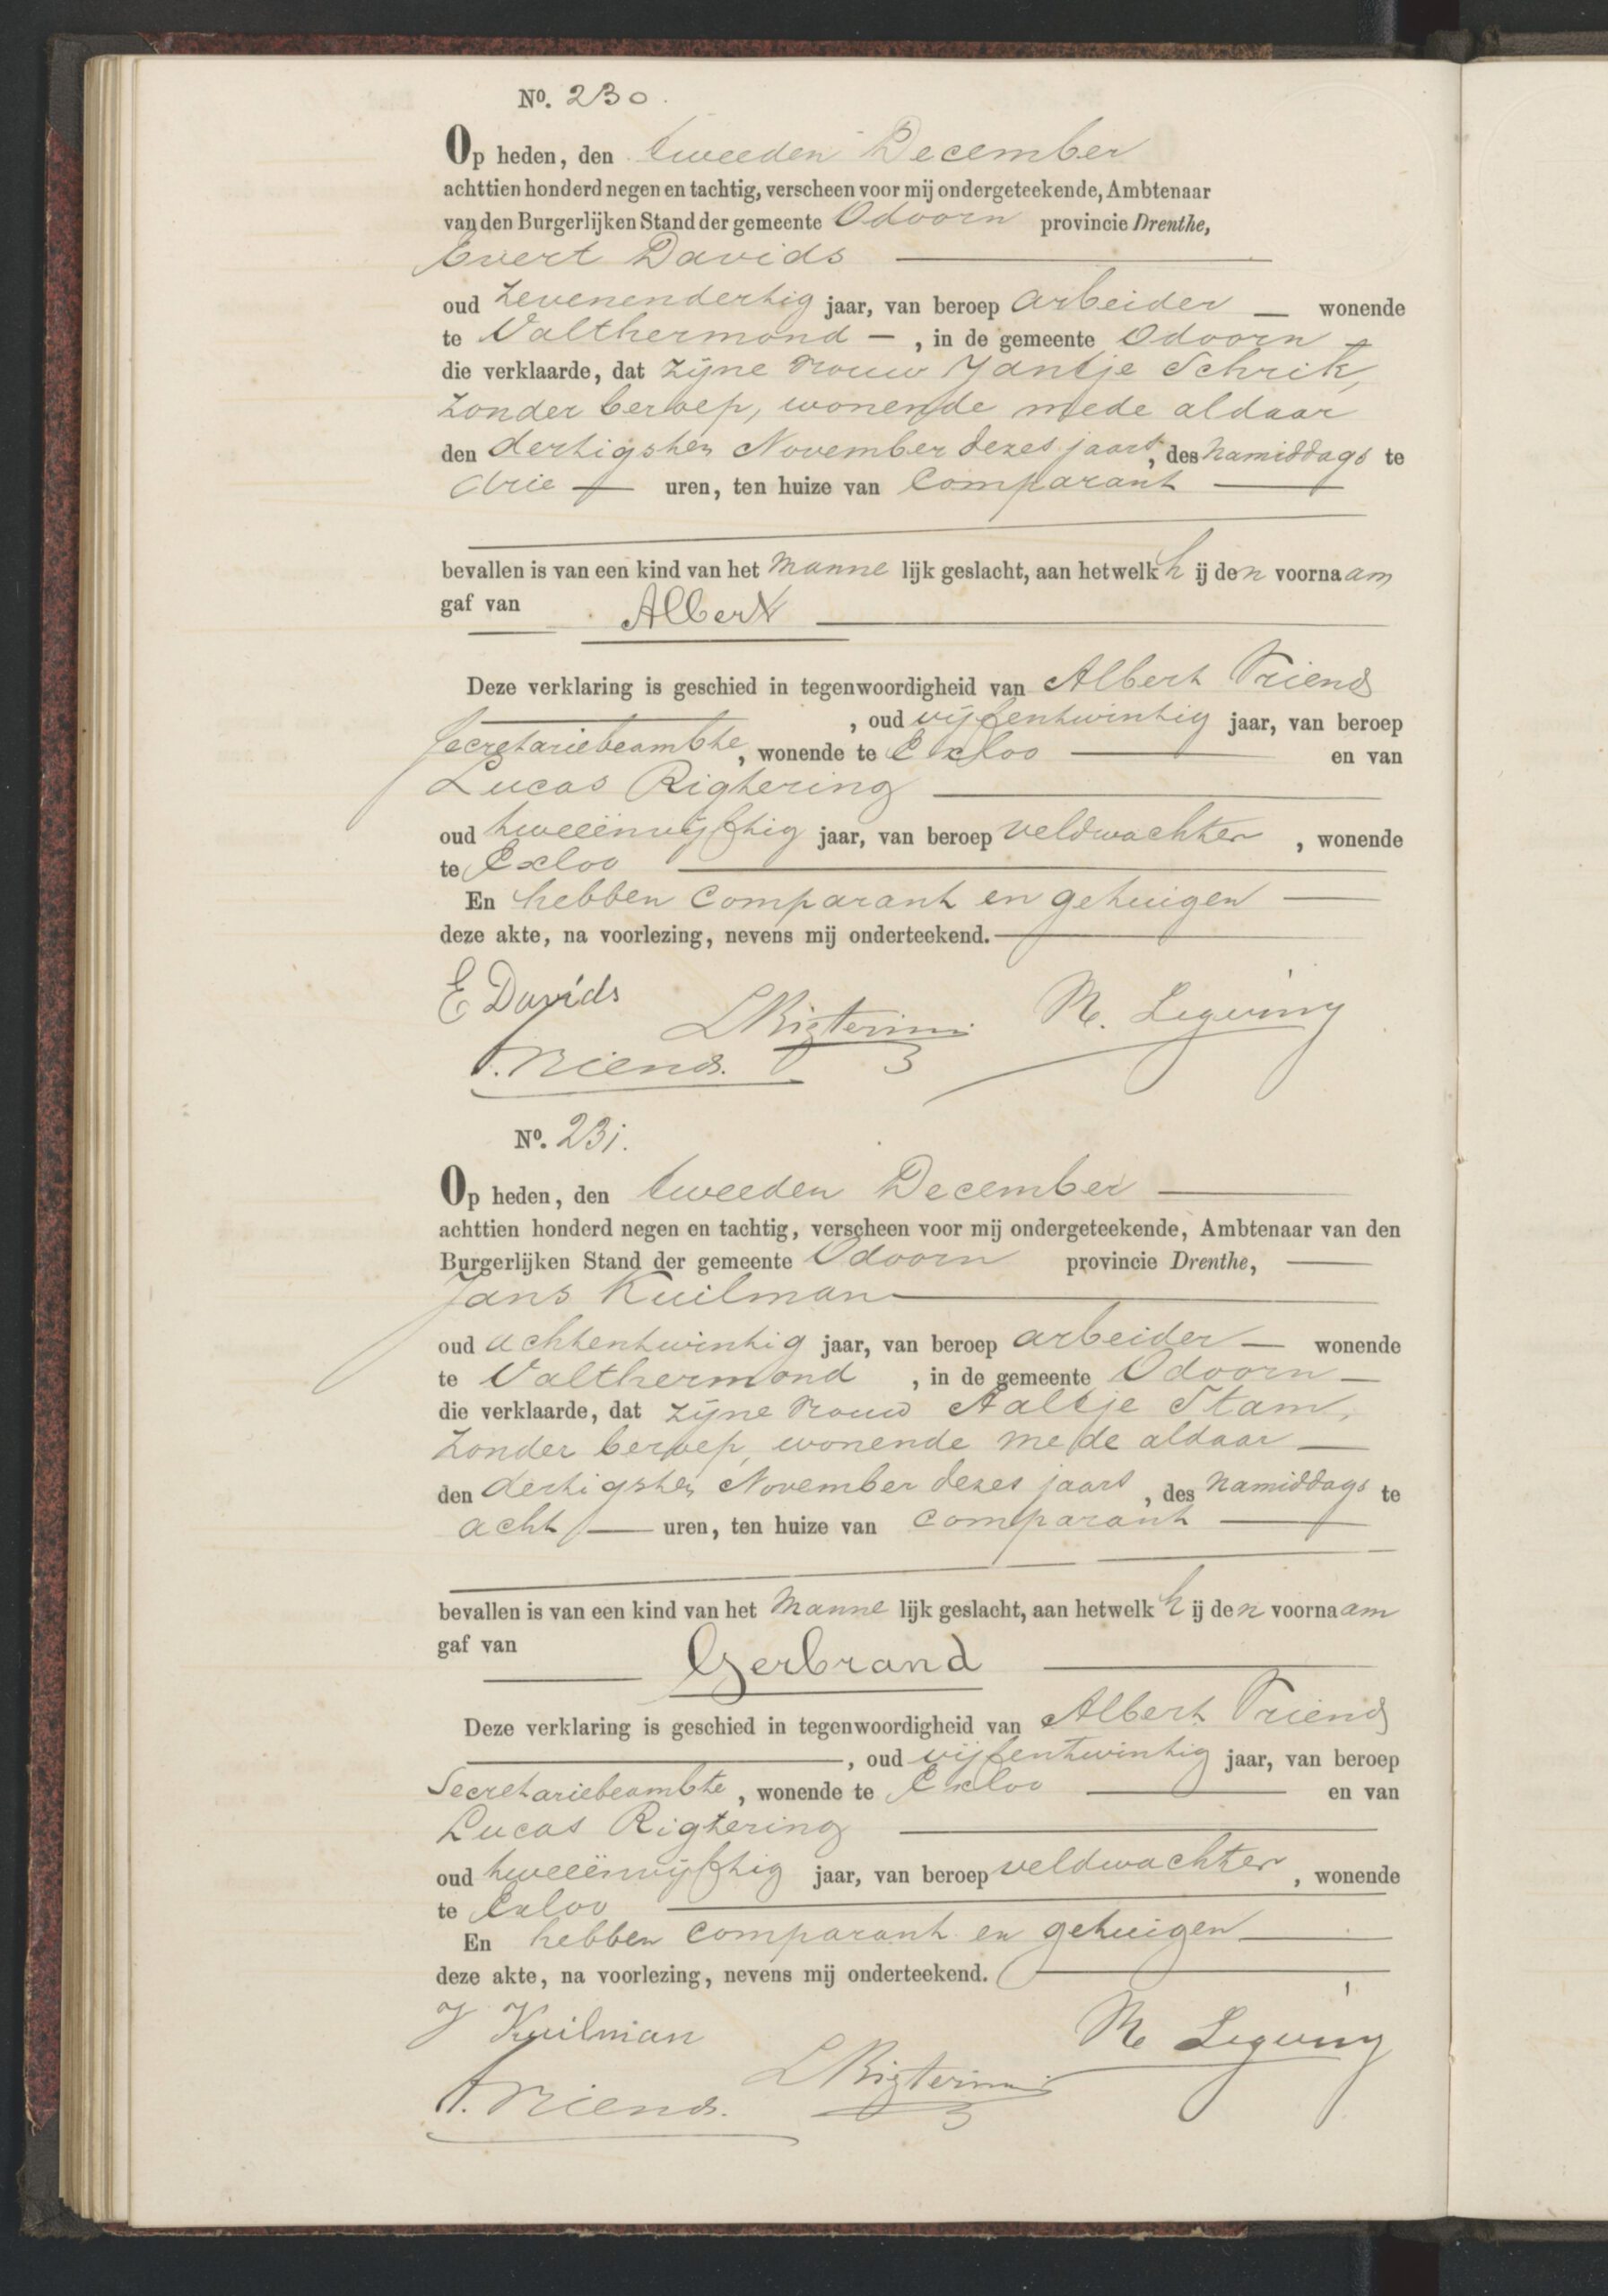 No. 230.
Op heden, den tweeden December
achttien honderd negen en tachtig, verscheen voor mij ondergeteekende, Ambtenaar
van den Burgerlijken Stand der gemeente Odoorn provincie Drenthe,
Evert Davids
oud zevenendertig jaar, van beroep arbeider wonende
te Valthermond, in de gemeente Odoorn
die verklaarde, dat zijne vrouw Jantje Schrik,
zonder beroep, wonende mede aldaar
den dertigsten November dezes jaars, des namiddags te
drie uren, ten huize van Comparant
bevallen is van een kind van het mannelijk geslacht, aan hetwelk hij den voornaam
gaf van Albert
Deze verklaring is geschied in tegenwoordigheid van Albert Vriend
, oud vijfentwintig jaar, van beroep
secretariebeambte, wonende te Exloo en van
Lucas Rigtering
oud tweeënvijftig jaar, van beroep veldwachter, wonende
te Exloo
En hebben Comparant en getuigen
deze akte, na voorlezing, nevens mij onderteekend.
E Davids
LRigtering
A. Vriend.
No. 231.
Op heden, den tweeden December
achttien honderd negen en tachtig, verscheen voor mij ondergeteekende, Ambtenaar van den
Burgerlijken Stand der gemeente Odoorn provincie Drenthe,
Jans Kuilman
oud achtentwintig jaar, van beroep arbeider wonende
te Valthermond, in de gemeente Odoorn
die verklaarde, dat zijne vrouw Aaltje Stam,
zonder beroep, wonende mede aldaar
den dertigsten November dezes jaars, des namiddags te
acht uren, ten huize van Comparant
bevallen is van een kind van het mannelijk geslacht, aan hetwelk hij den voornaam
gaf van Gerbrand
Deze verklaring is geschied in tegenwoordigheid van Albert Vriend
, oud vijfentwintig jaar, van beroep
Secretariebeambte, wonende te Exloo en van
Lucas Rigtering
oud tweeënvijftig jaar, van beroep veldwachter, wonende
te Exloo
En hebben Comparant en getuigen
deze akte, na voorlezing, nevens mij onderteekend.
J Kuilman
LRigtering
A. Vriend.